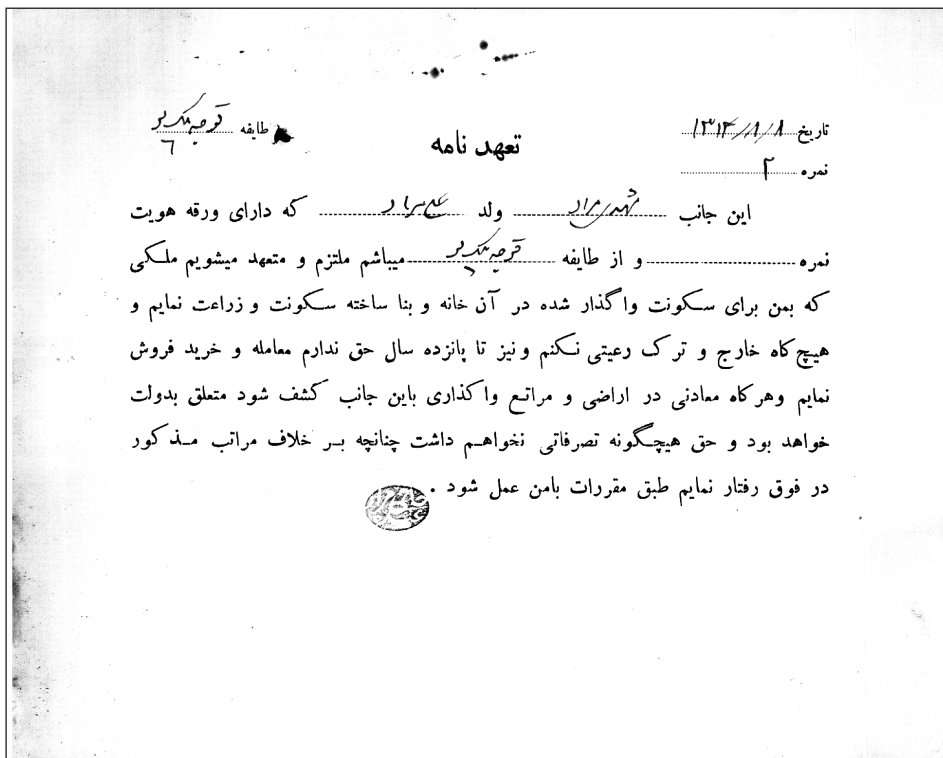 تاریخ ۱۳۱۴/۸/۸
نمره ۲
طایفه
تعهد نامه
این جانب ولد که دارای ورقه هویت
نمره و از طایفه میباشم ملتزم و متعهد میشویم ملکی
که بمن برای سکونت واگذار شده در آن خانه و بنا ساخته سکونت و زراعت نمایم و
هیچ کاه خارج و ترک رعیتی نکنم و نیز تا پانزده سال حق ندارم معامله و خرید فروش
نمایم وهرکاه معادنی در اراضی و مراتع واکذاری باین جانب کشف شود متعلق بدولت
خواهد بود و حق هیچگونه تصرفاتی نخواهم داشت چنانچه بر خلاف مراتب مذکور
در فوق رفتار نمایم طبق مقررات بامن عمل شود .